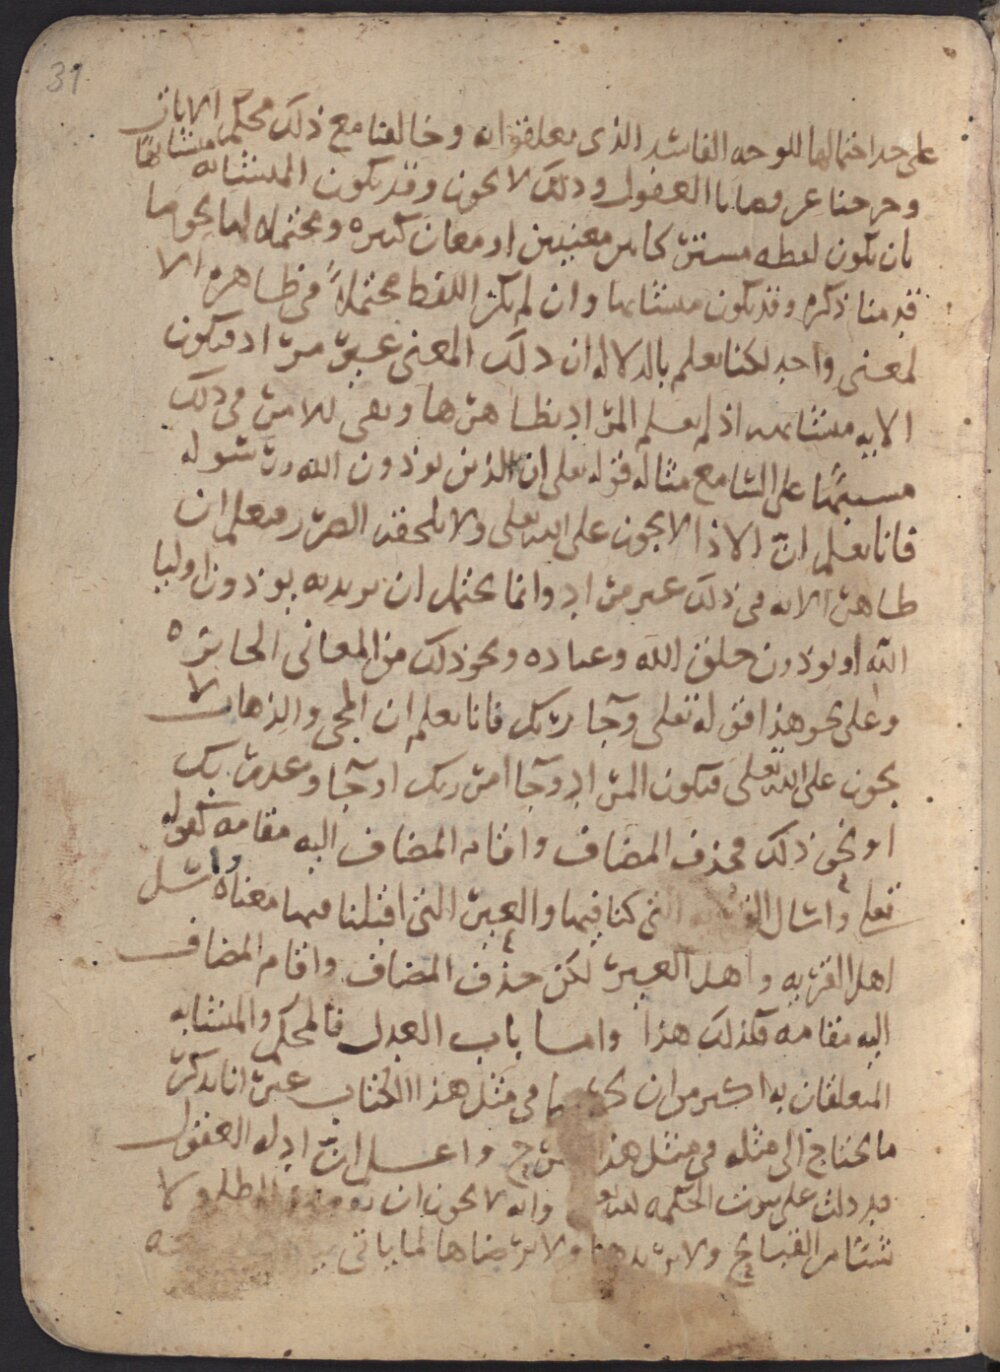 31
على حد احتمالها للوجه الفاسد الذي تعلقوا به وخالفنا مع ذلك محكم الايات
وخرجنا عن قضايا العقول وذلك لا يجوز وقد يكون المتشابه متشابهًا
بان يكون لفظه مشتركا بين معنيين او معان كثيره ومحتملا لهما نحو ما
قدمنا ذكره وقد يكون متشابها وان لم يكن اللفظ محتملاً في ظاهره الا
لمعنى واحد لكنا نعلم بالدلاله ان ذلك المعنى غير مراد فتكون
الايه متشابهه اذ لم يعلم المراد بظاهرها وبقي الامر في ذلك
مبهمًا على السامع مثاله قوله تعلى ان الذين يوذون الله ورسوله
فانا نعلم انّ الاذا لا يجوز على الله تعلى ولا تلحقه الضرر فنعلم ان
ظاهر الايه في ذلك غير مراد وانما يحتمل ان يريد به يوذون اوليا
الله او يوذون خلق الله وعباده ونحو ذلك من المعاني الجائزه
وعلى نحو هذا قوله تعلى وجآ ربك فانا نعلم ان المجي والذهاب لا
يجوز على الله تعلى فيكون المراد وجآ امر ربك او جآ وعد ربك
او نحو ذلك فحذف المضاف واقام المضاف اليه مقامه كقوله
تعلى واسال القريه التي كنا فيها والعير التي اقبلنا فيها معناه واسل
اهل القريه واهل العير لكن حذف المضاف واقام المضاف
اليه مقامه فكذلك هذا واما باب العدل فالمحكم والمتشابه
المتعلقان به اكثر من ان في مثل هذا الكتاب غير انا نذكر
ما يحتاج الى مثله في مثل هذا واعلم انّ ادله العقول
قد دلت على ثبوت الحكمه لله وانه لا يجوز ان الظلم ولا
شيئا من القبايح ولا يريدها ولا يرضاها لما ياتي